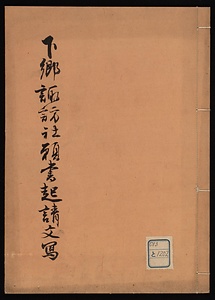 下郷諏方社頭書起請文写